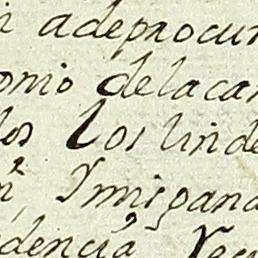 n adeprocur
onio delacar
los Los linde
n, Ymigana
dencia, Yeu